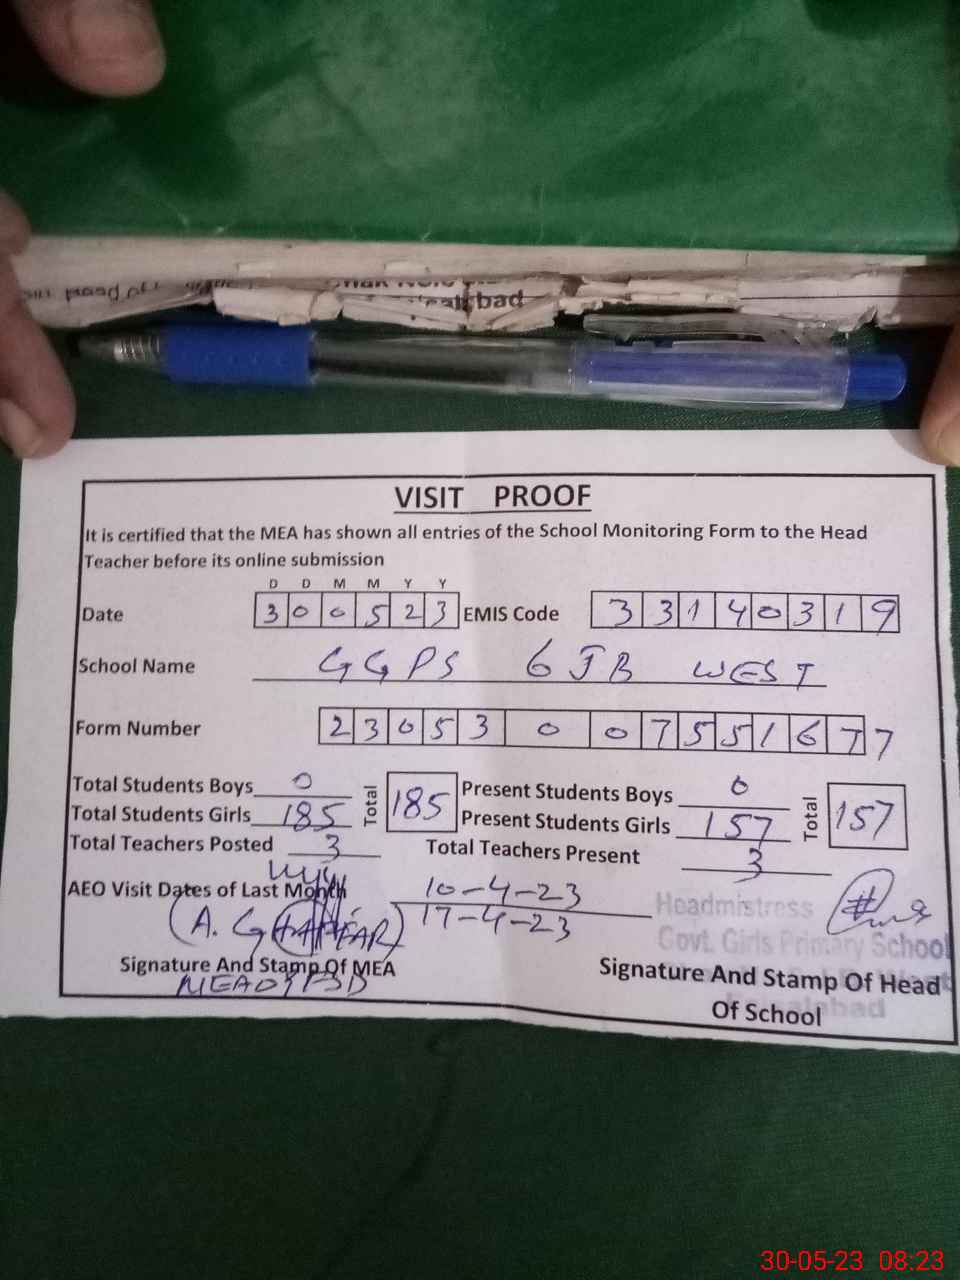 bad
VISIT PROOF
It is certified that the MEA has shown all entries of the School Monitoring Form to the Head
Teacher before its online submission
D D M M Y Y
Date 3 0 0 5 2 3 EMIS Code 3 3 1 4 0 3 1 9
School Name GGPS 6 JB WEST
Form Number 2 3 0 5 3 0 0 7 5 5 1 6 7 7
Total Students Boys 0 Present Students Boys 0
Total Students Girls 185 Total 185 Present Students Girls 157 Total 157
Total Teachers Posted 3 Total Teachers Present 3
AEO Visit Dates of Last Month 10-4-23
17-4-23
Headmistress
Govt. Girls Primary School
Signature And Stamp Of MEA
Signature And Stamp Of Head
Of School
30-05-23 08:23